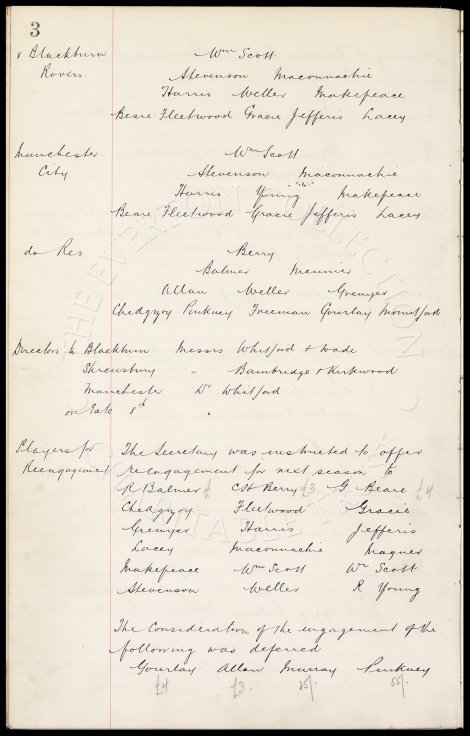 3
v Blackburn Wm Scott
Rovers. Stevenson Maconnachie
Harris Weller Makepeace
Beare Fleetwood Gracie Jefferis Lacey
Manchester Wm Scott
City Stevenson Maconnachie
Harris Young Makepeace
Beare Fleetwood Gracie Jefferis Lacey
do Res Berry
Balmer Meunier
Allan Weller Grenyer
Chedgzoy Pinkney Freeman Gourlay Mountford
Directors to Blackburn Messrs Whitford & Wade
Shrewsbury " Bainbridge & Kirkwood
Manchester Dr Whitford
on Sale 8th
Players for The Secretary was instructed to offer
Reengagement re-engagement for next season to
R Balmer C H Berry £3 G Beare £4
Chedgzoy Fleetwood Gracie
Grenyer Harris Jefferis
Lacey Maconnachie Magner
Makepeace Wm Scott Wr Scott
Stevenson Weller R Young
The Consideration of the engagement of the
following was deferred
Gourlay Allan Murray Pinkney
£4 £3. 25/- 55/-
THE EVERTON COLLECTION